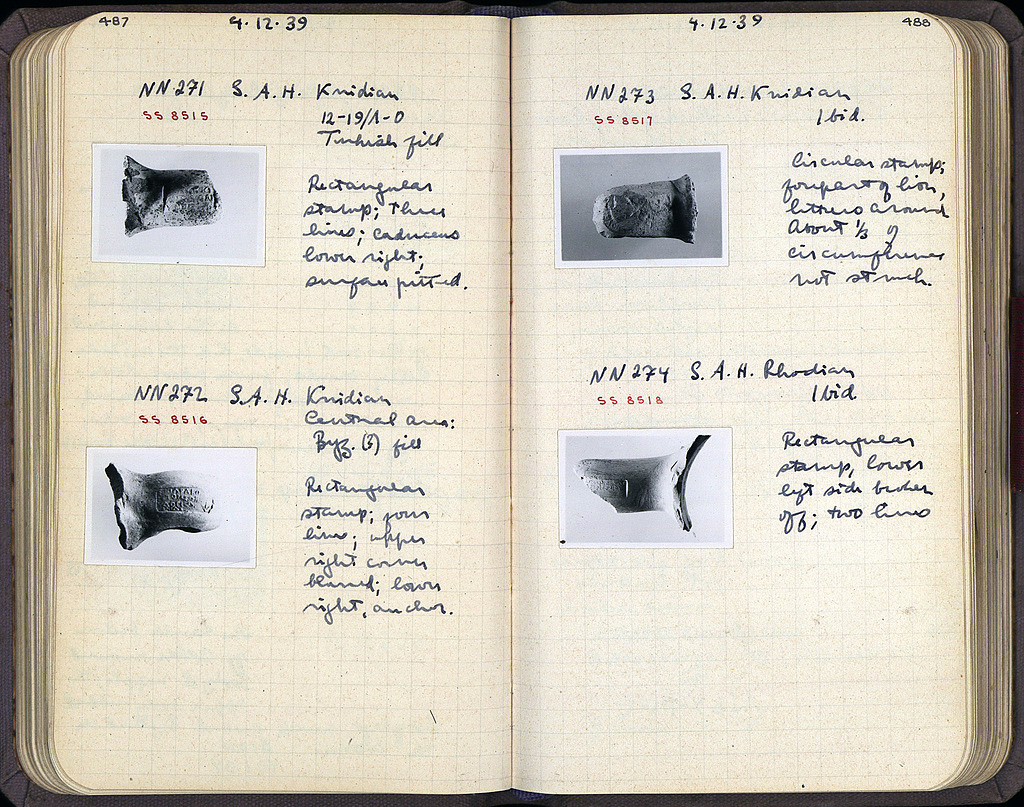 487
4.12.39
NN271 S.A.H. Knidian
SS 8515
12-19/Λ-Ο
Turkish fill
Rectangular
stamp; three
lines; caduceus
lower right;
surface pitted.
NN272 S.A.H. Knidian
SS 8516
Central area:
Byz. (?) fill
Rectangular
stamp; four
lines; upper
right corner
blurred; lower
right, anchor.
4.12.39
488
NN273 S.A.H. Knidian
SS 8517
Ibid.
Circular stamp;
forepart of lion,
letters around
About 1/3 of
circumference
not struck.
NN274 S.A.H. Rhodian
SS 8518
Ibid
Rectangular
stamp, lower
left side broken
off; two lines